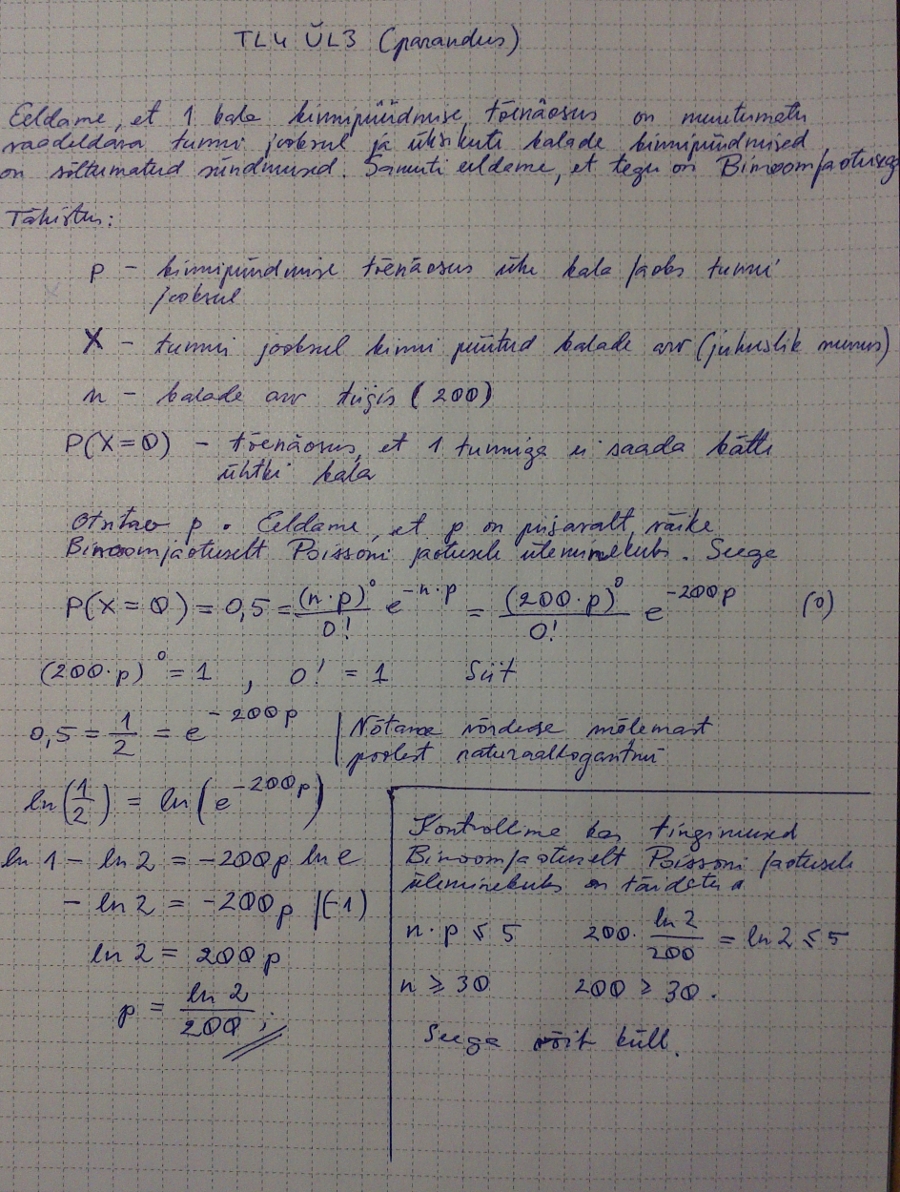 TL4 ÜL3 (parandus)
Eeldame, et 1 kala kinnipüüdmise tõenäosus on muutumatu
vaadeldava tunni jooksul ja üksikute kalade kinnipüüdmised
on sõltumatud sündmused. Samuti eeldame, et tegu on Binoomjaotusega
Tähistus:
p - kinnipüüdmise tõenäosus ühe kala jaoks tunni
jooksul
X - tunni jooksul kinni püütud kalade arv (juhuslik suurus)
n - kalade arv tiigis (200)
P(X=0) - tõenäosus, et 1 tunniga ei saada kätte
ühtki kala
Otsitav p. Eeldame, et p on piisavalt väike
Binoomjaotuselt Poissoni jaotusele üleminekuks. Seega
P(X=0) = 0,5 = (n·p)^0/0! e^{-n·p} = (200·p)^0/0! e^{-200p} (0)
(200·p)^0 = 1 , 0! = 1 Siit
0,5 = 1/2 = e^{-200p} | Võtame võrduse mõlemast
poolest naturaallogaritmi
ln(1/2) = ln(e^{-200p})
ln 1 - ln 2 = -200p ln e
- ln 2 = -200p |(-1)
ln 2 = 200p
p = ln 2/200 ;
Kontrollime kas tingimused
Binoomjaotuselt Poissoni jaotusele
üleminekuks on täidetud
n·p ≤ 5 200· ln 2/200 = ln 2 ≤ 5
n ≥ 30 200 ≥ 30.
Seega võit küll.